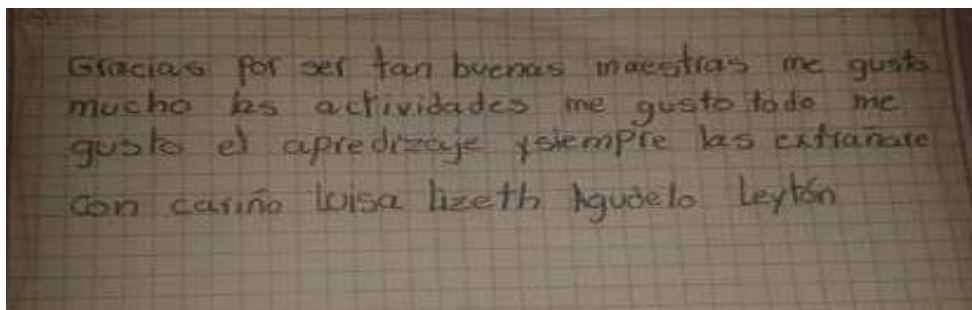 Gracias por ser tan buenas maestras me gusto
mucho las actividades me gusto todo me
gusto el apredizaje y siempre las extrañare
con cariño luisa lizeth Agudelo Leytón